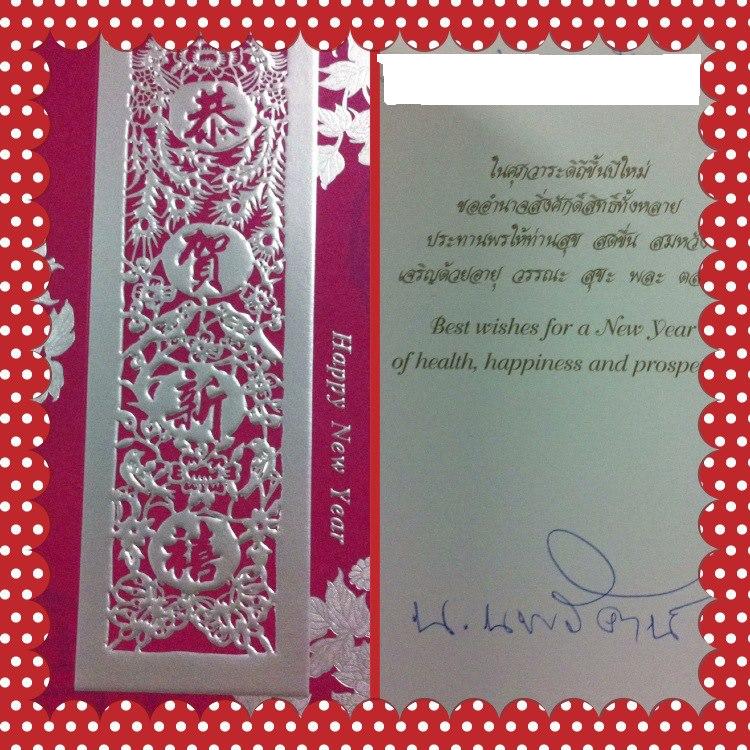 恭
賀
新
禧
Happy New Year
ในศุภวาระดิถีขึ้นปีใหม่
ขออำนาจสิ่งศักดิ์สิทธิ์ทั้งหลาย
ประทานพรให้ท่านสุข สดชื่น สมหวัง
เจริญด้วยอายุ วรรณะ สุขะ พละ ตล
Best wishes for a New Year
of health, happiness and prospe